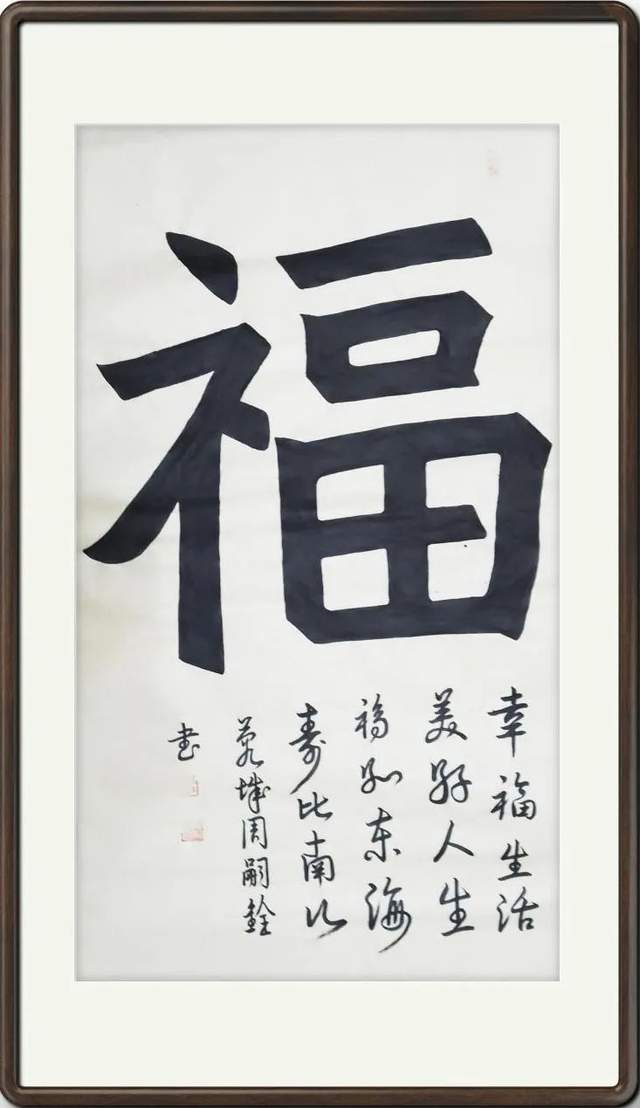 福
幸福生活
美好人生
福如东海
寿比南山
城周嗣銓
书